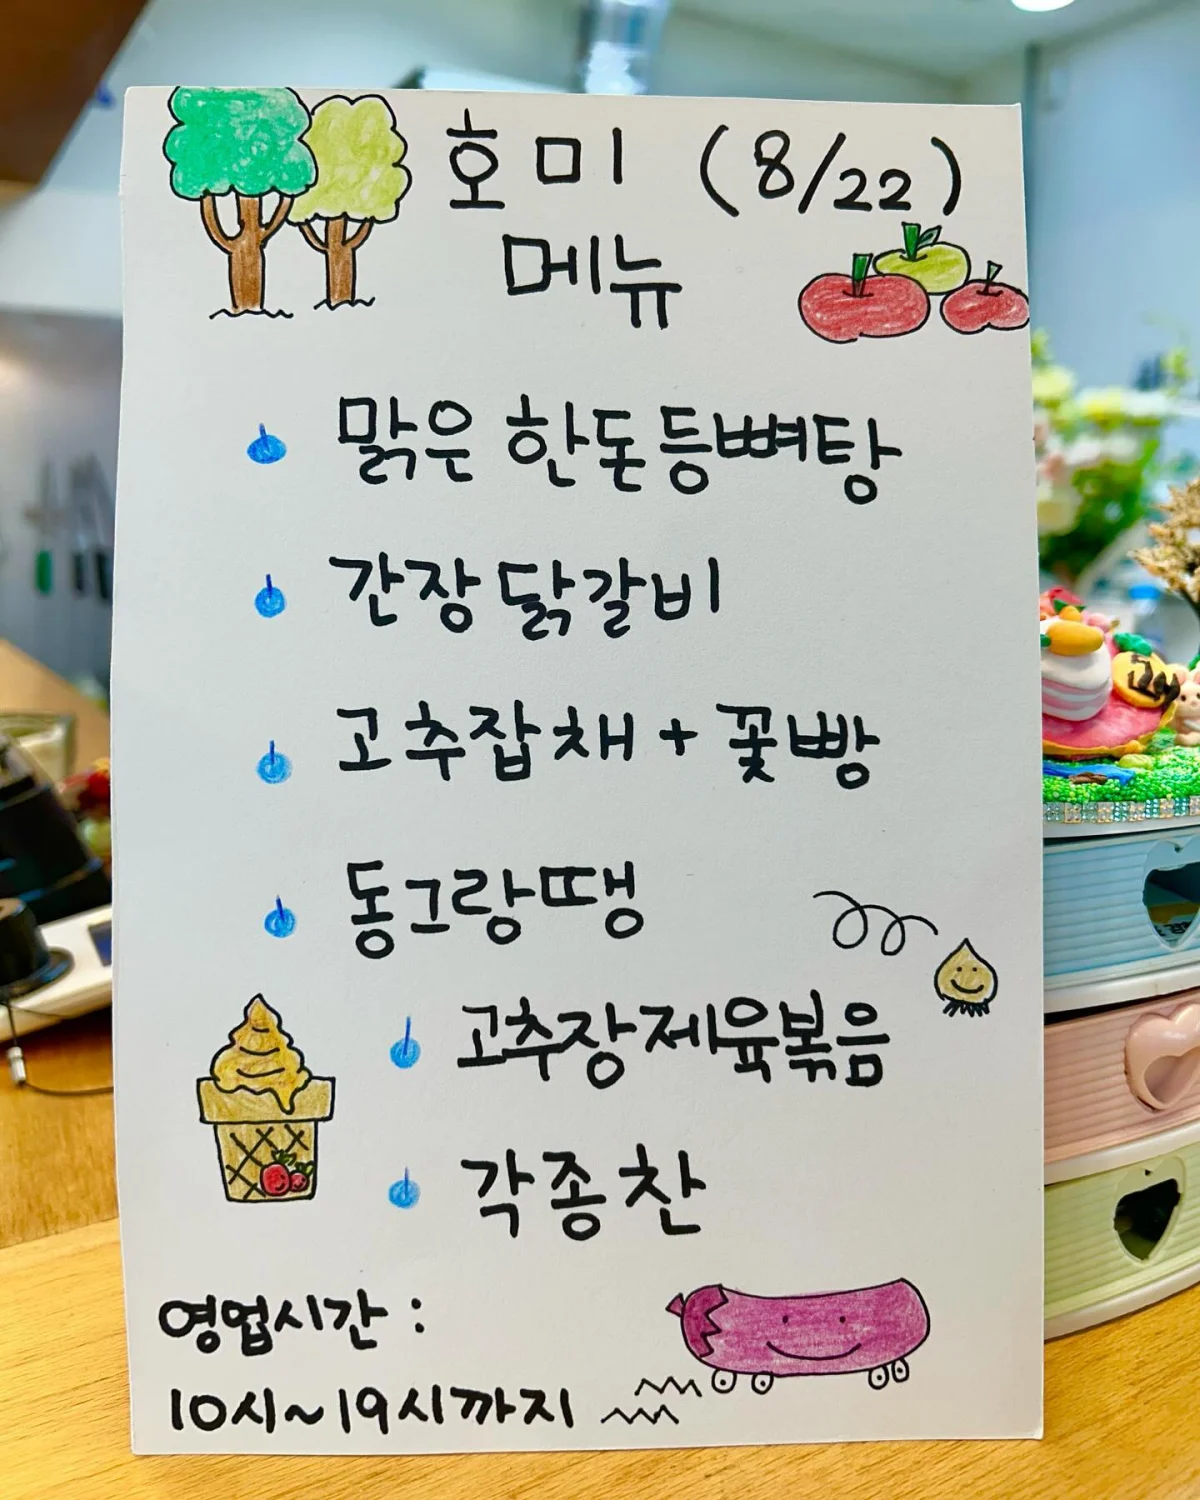 호미 (8/22)
메뉴
맑은 한돈등뼈탕
간장 닭갈비
고추잡채 + 꽃빵
동그랑땡
고추장제육볶음
각종 찬
영업시간 :
10시~19시까지